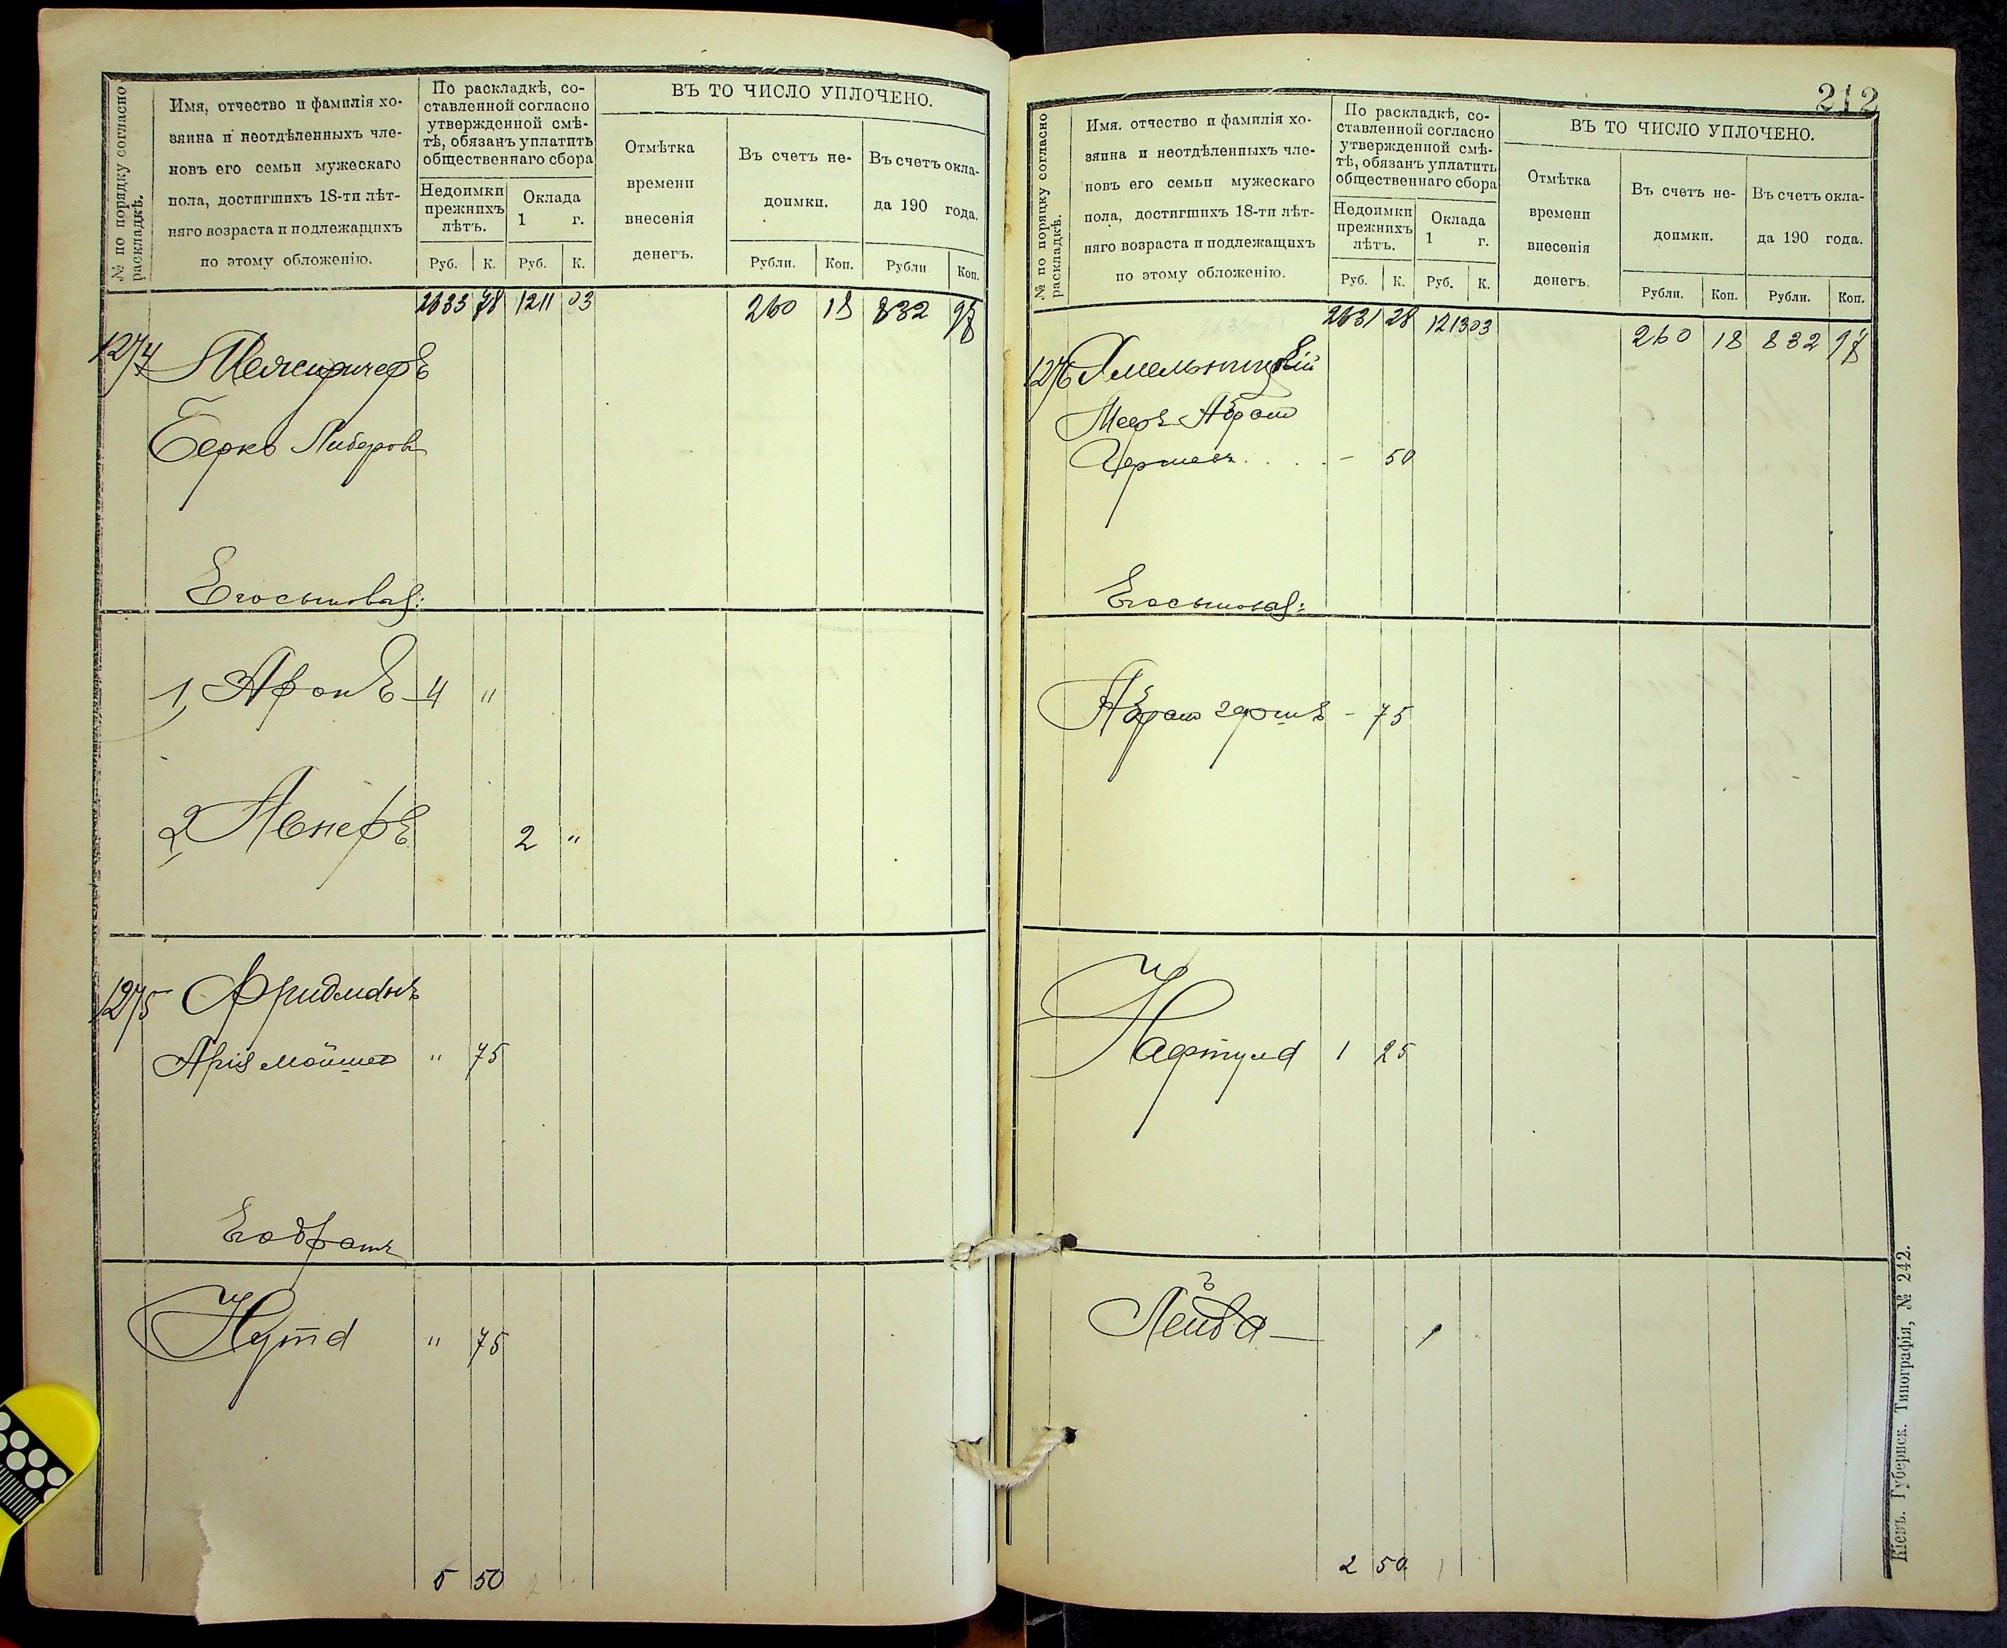 № по порядку согласно раскладкѣ.
Имя, отчество и фамилія хо-
зяина и неотдѣленныхъ чле-
новъ его семьи мужескаго
пола, достигшихъ 18-ти лѣт-
няго возраста и подлежащихъ
по этому обложенію.
По раскладкѣ, со-
ставленной согласно
утвержденной смѣ-
тѣ, обязанъ уплатить
общественнаго сбора
Недоимки
прежнихъ
лѣтъ.
Оклада
1 г.
Руб. К. Руб. К.
ВЪ ТО ЧИСЛО УПЛОЧЕНО.
Отмѣтка
времени
внесенія
денегъ.
Въ счетъ не-
доимки.
Въ счетъ окла-
да 190 года.
Рубли. Коп. Рубли Коп.
2633 78 1211 03 260 18 832 98
1274 Межиричеръ
Берко Либеровъ
Его сыновья:
1, Аронъ 4 "
2, Аснеръ 2 "
1275 Фридманъ
Арія Мойшео " 75
Его братъ
Нута " 75
5 50 2
212
№ по порядку согласно раскладкѣ.
Имя, отчество и фамилія хо-
зяина и неотдѣленныхъ чле-
новъ его семьи мужескаго
пола, достигшихъ 18-ти лѣт-
няго возраста и подлежащихъ
по этому обложенію.
По раскладкѣ, со-
ставленной согласно
утвержденной смѣ-
тѣ, обязанъ уплатить
общественнаго сбора
Недоимки
прежнихъ
лѣтъ.
Оклада
1 г.
Руб. К. Руб. К.
ВЪ ТО ЧИСЛО УПЛОЧЕНО.
Отмѣтка
времени
внесенія
денегъ.
Въ счетъ не-
доимки.
Въ счетъ окла-
да 190 года.
Рубли. Коп. Рубли. Коп.
2631 28 1213 03 260 18 832 98
1276 Хмельницкій
Мееръ Абрам
Гершевъ . . . . - 50
Его сыновья:
Абрам Гершъ - 75
Нафтула 1 25
Лейба - 1
2 50 1
Кіевъ. Губернск. Типографія, № 242.